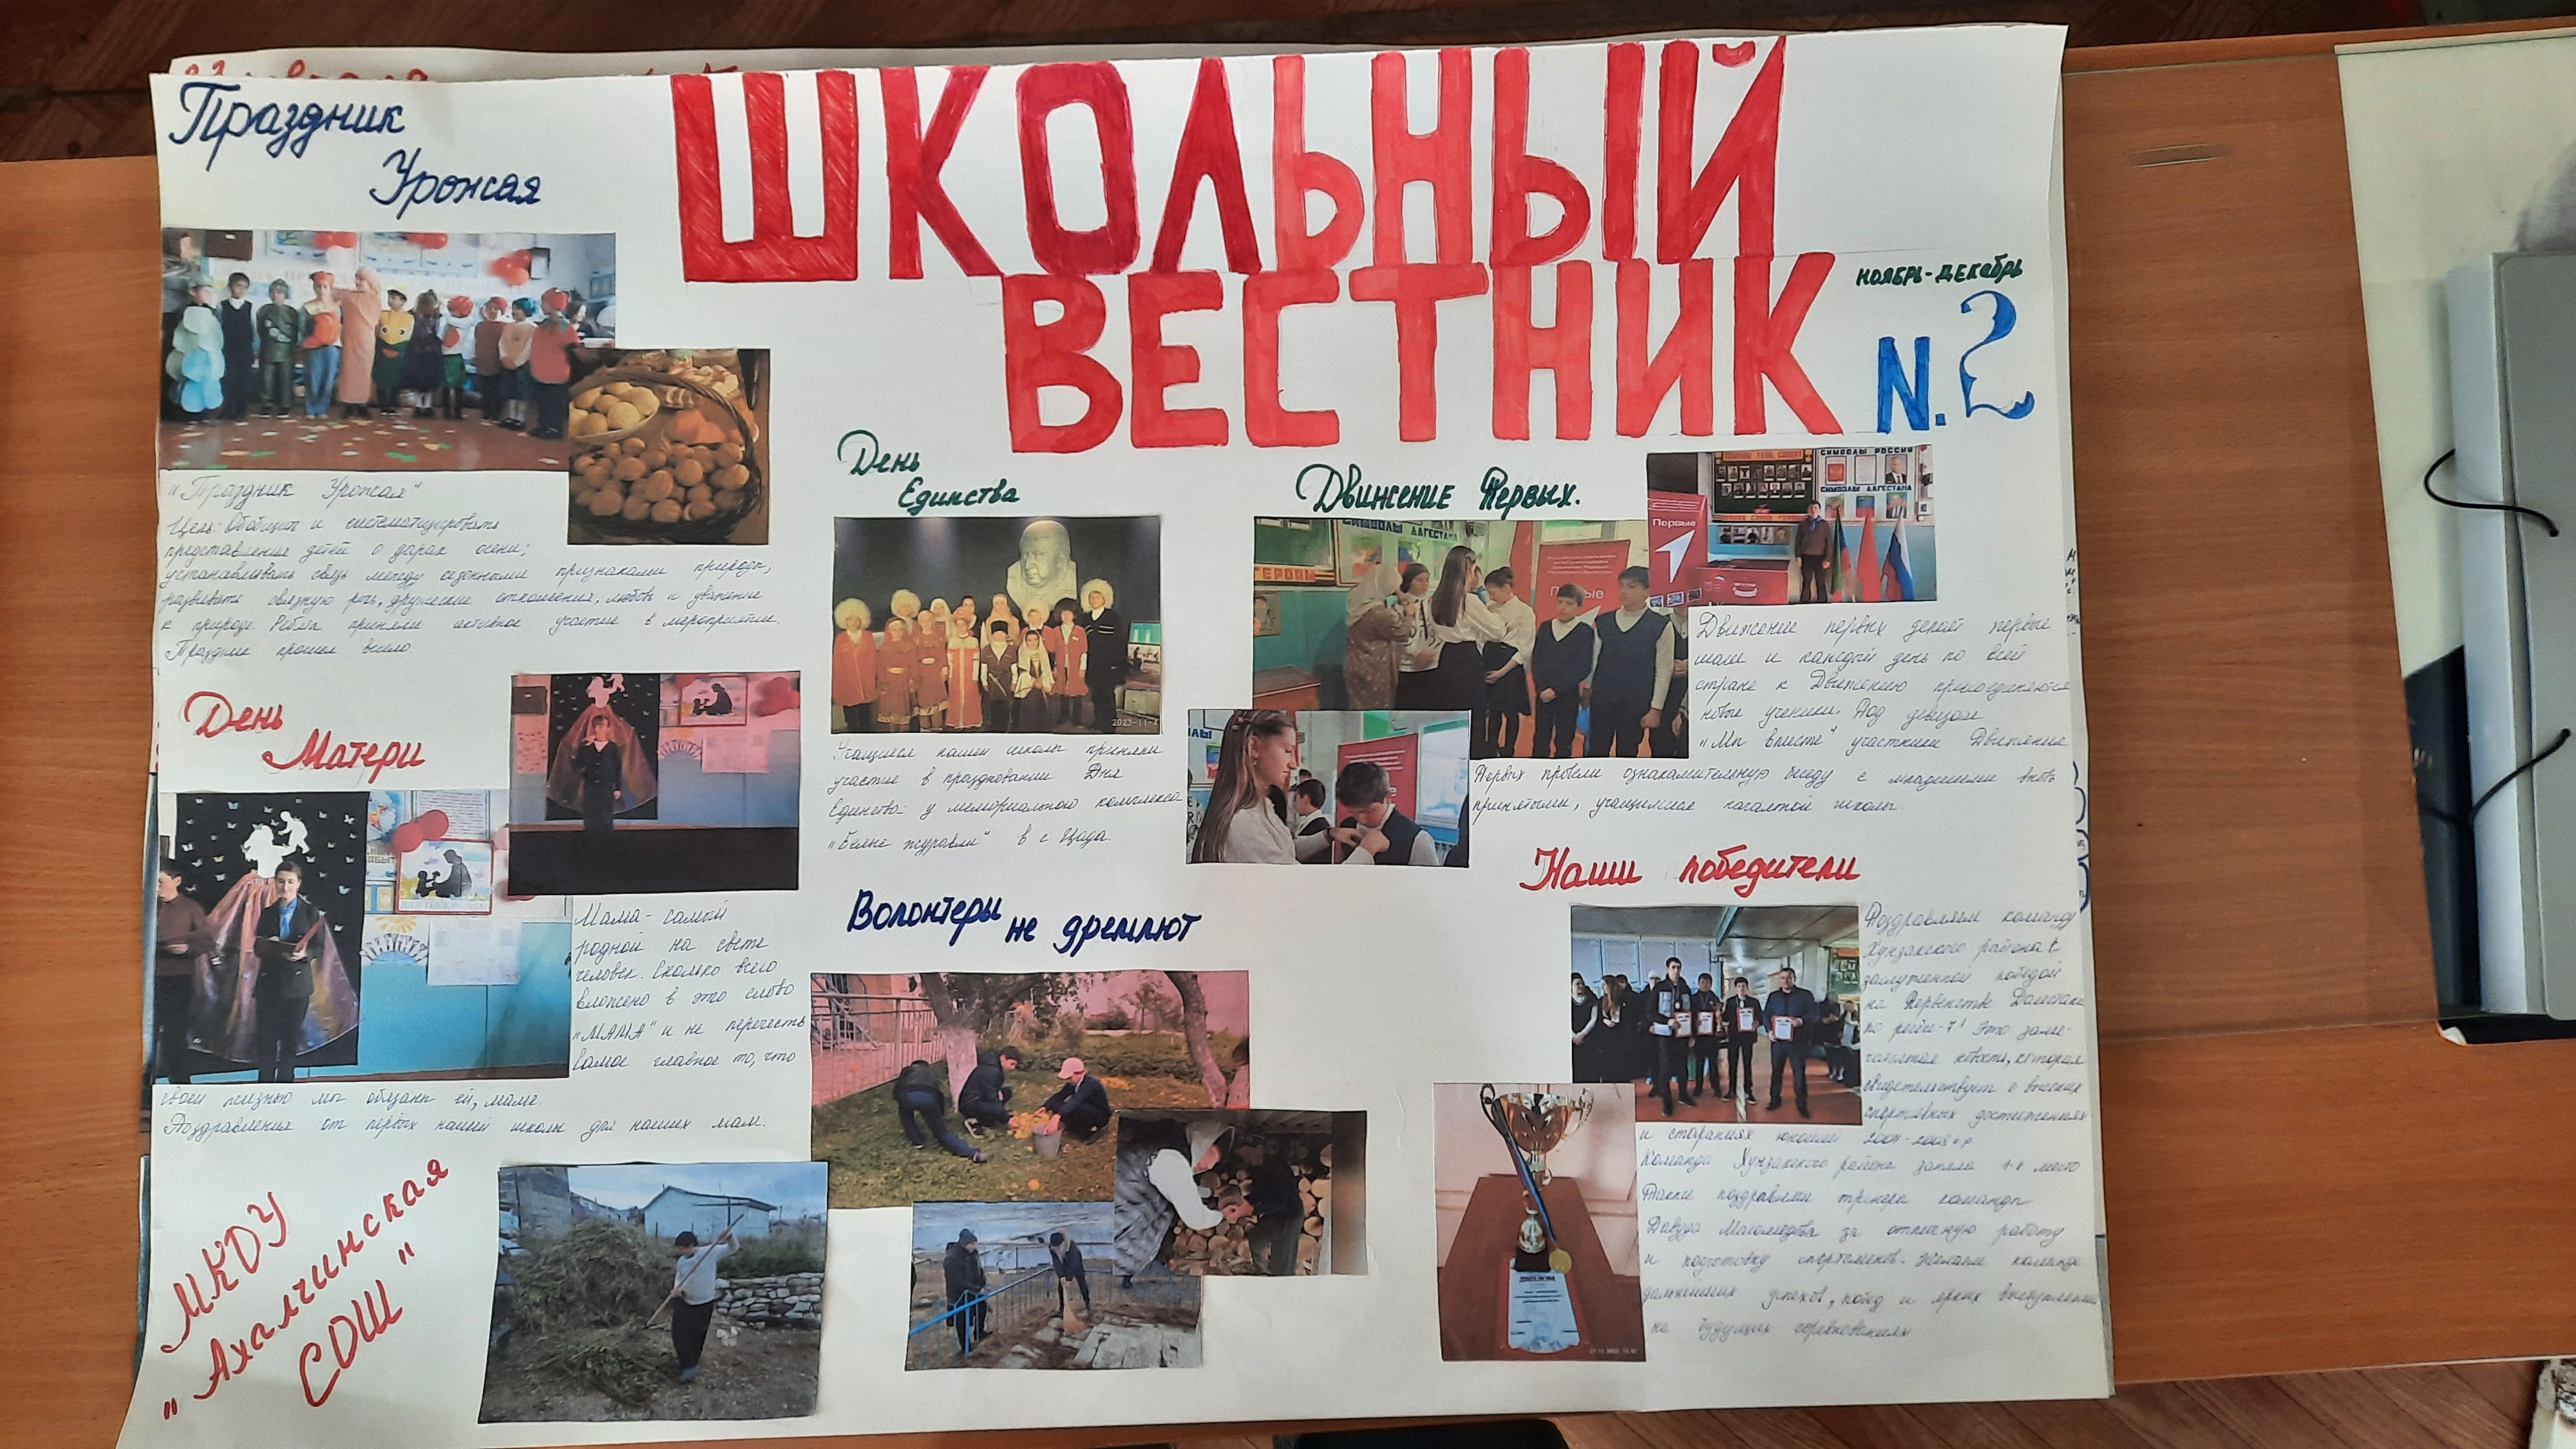 ШКОЛЬНЫЙ
ВЕСТНИК
НОЯБРЬ-ДЕКАБРЬ
N.2
Праздник
Урожая
"Праздник Урожая"
Цель: Обобщить и систематизировать
представления детей о дарах осени;
устанавливать связь между сезонными признаками природы;
развивать связную речь, дружеские отношения, любовь и уважение
к природе. Ребята приняли активное участие в мероприятие.
Праздник прошел весело.
День
Матери
Мама - самый
родной на свете
человек. Сколько всего
вложено в это слово
"МАМА" и не перечесть
Самое главное то, что
своей жизнью мы обязаны ей, маме.
Поздравления от первых нашей школы для наших мам.
МКОУ
"Ахалчинская
СОШ"
День
Единства
2023-11-4
Учащиеся нашей школы приняли
участие в праздновании Дня
Единства у мемориального комплекса
"Белые журавли" в с. Цада.
Волонтеры
не дремлют
Движение Первых.
СИМВОЛЫ РОССИИ
СИМВОЛЫ ДАГЕСТАНА
Первые
СИМВОЛЫ
ДАГЕСТАНА
ГЕРОИ
Движение первых делает первые
шаги и каждый день по всей
стране к Движению присоединяются
новые ученики. Под девизом
"Мы вместе" участники Движение
Первых провели ознакомительную беседу с младшими вновь
принятыми, учащимися начальной школы
Наши победители
Поздравляем команду
Хунзахского района с
заслуженной победой
на Первенстве Дагестана
по регби-7! Это заме-
чательная новость, которая
свидетельствует о высоких
спортивных достижениях
и стараниях юношей
Команда Хунзахского района заняла место
Также поздравляем тренера команды
Давуда Магомедова за отличную работу
и подготовку спортсменов. Желаем команде
дальнейших успехов, побед и ярких выступлений
на будущих соревнованиях